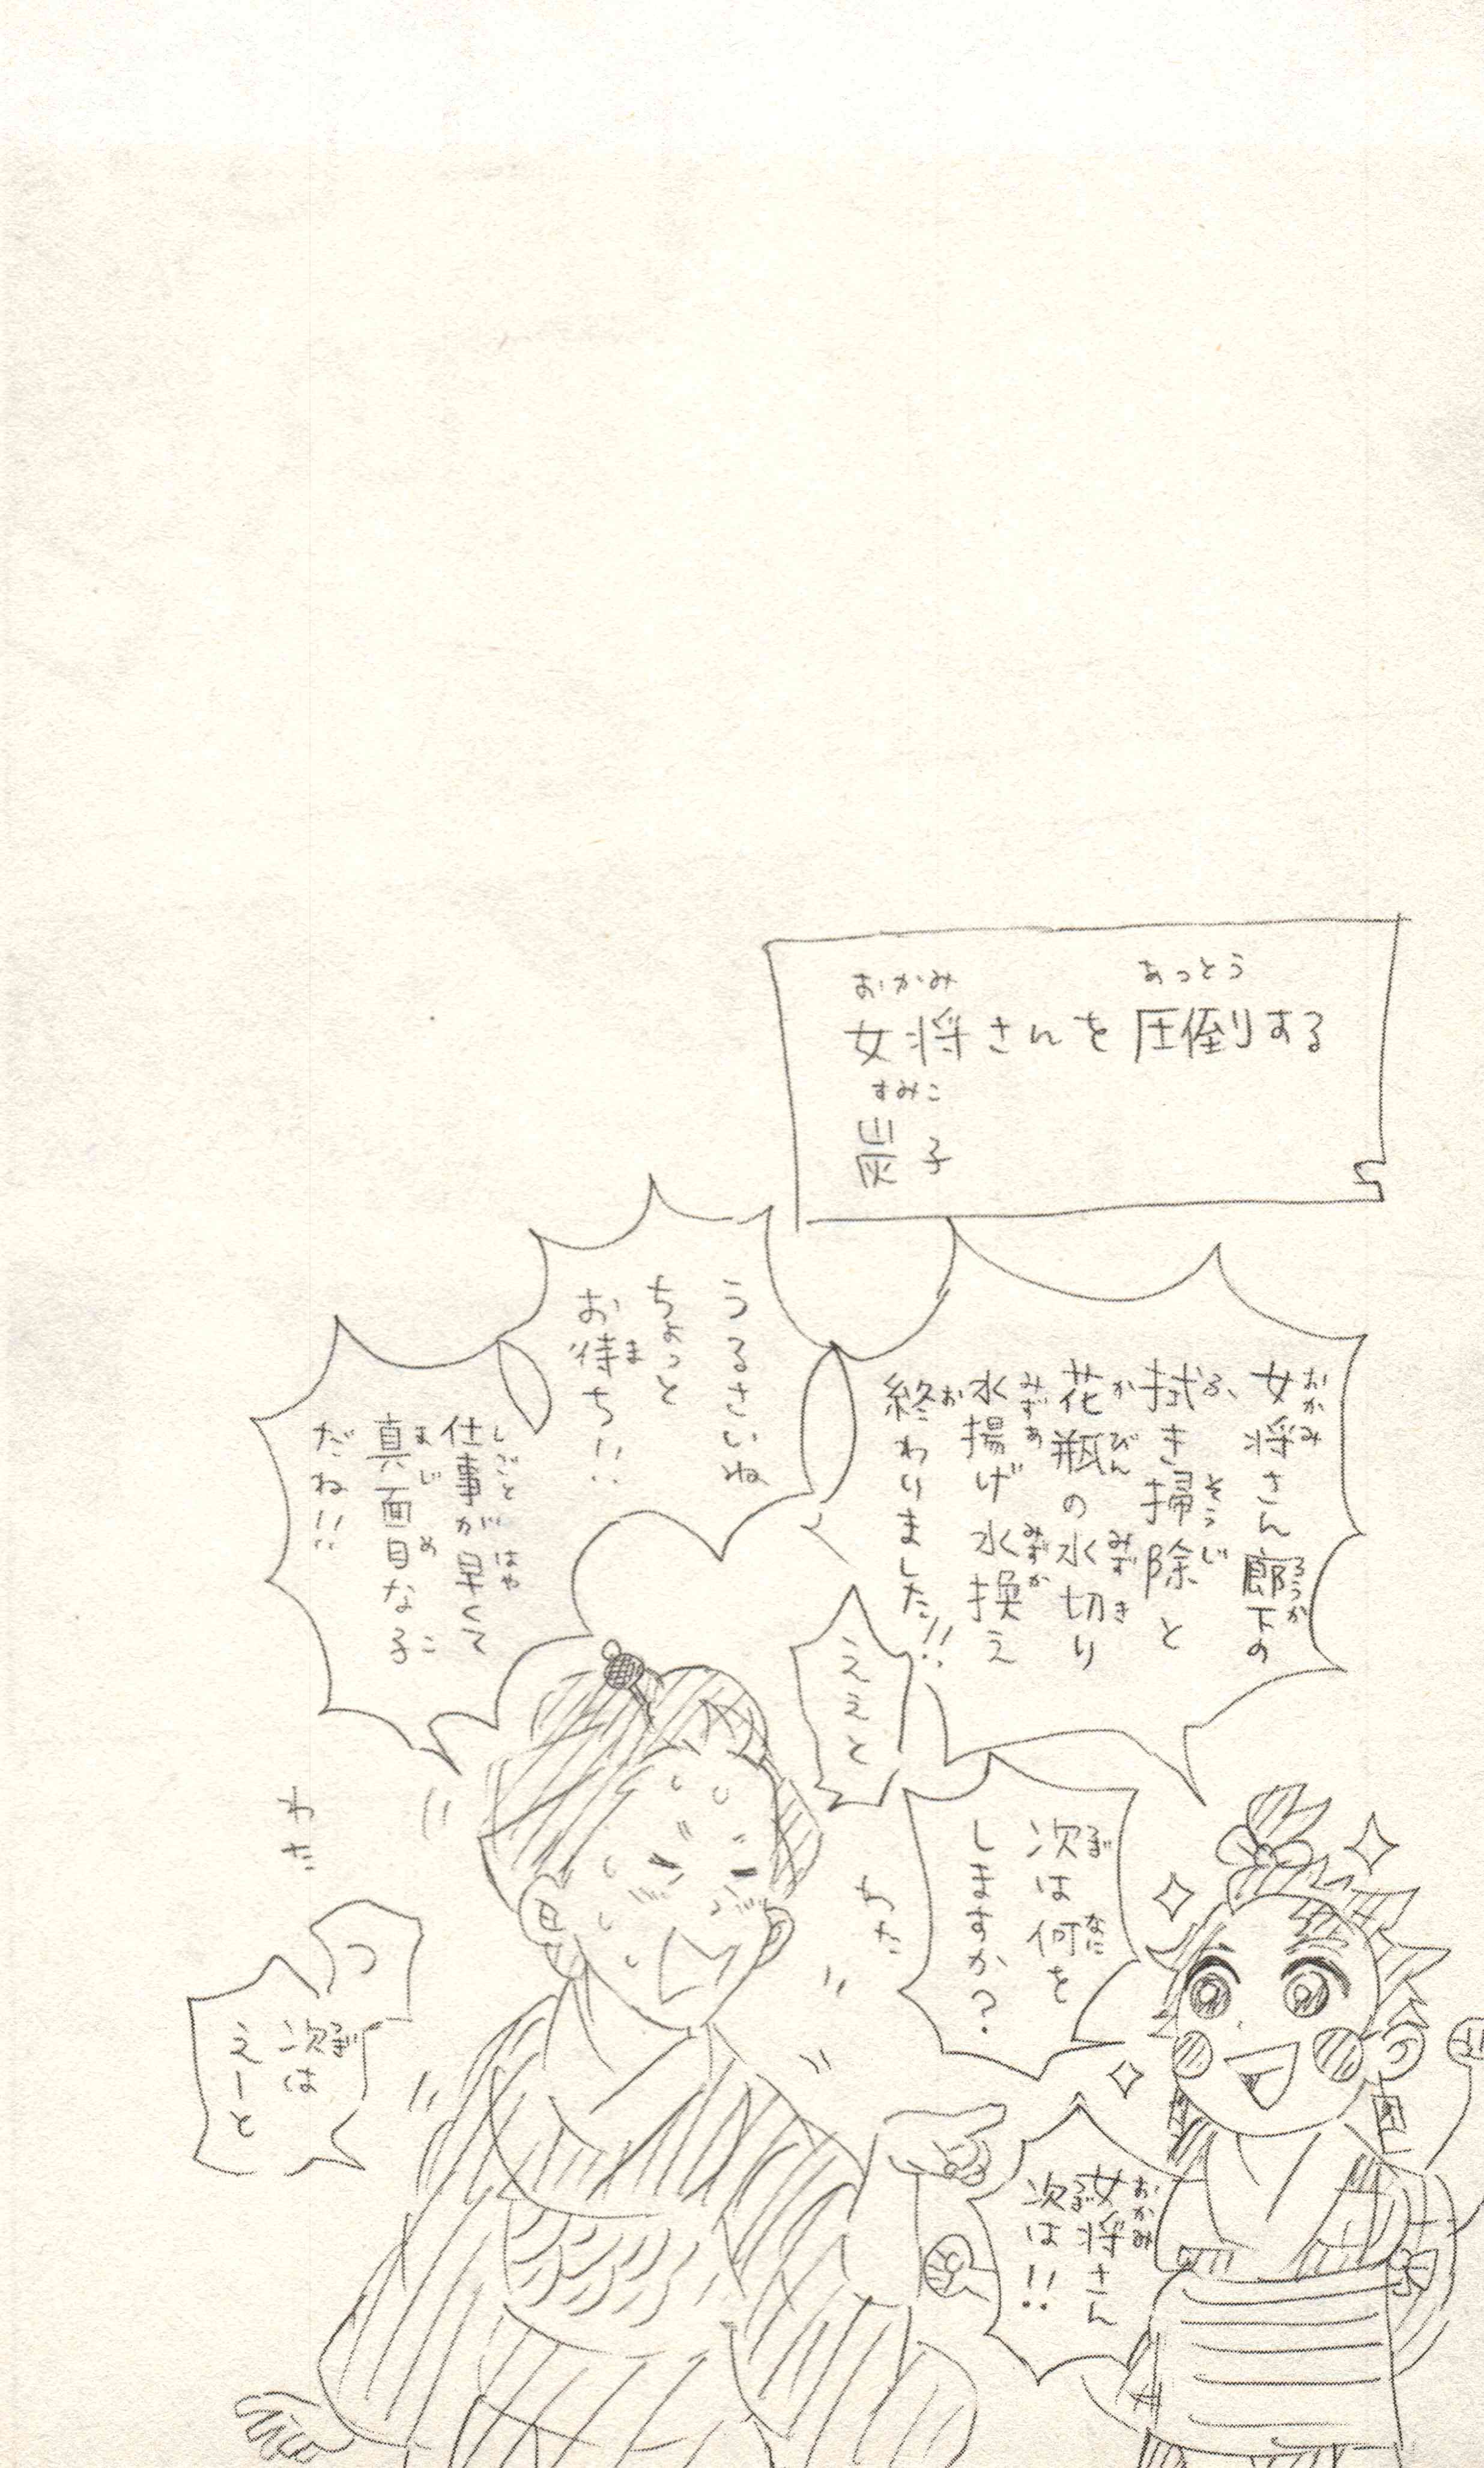 女将さんを圧倒する
炭子
女将さん廊下の
拭き掃除と
花瓶の水切り
水揚げ水換え
終わりました!!
うるさいね
ちょっと
お待ち!!
仕事が早くて
真面目な子
だね!!
ええと
次は何を
しますか?
わた
わた
つ
次は
えーと
女将さん
次は!!